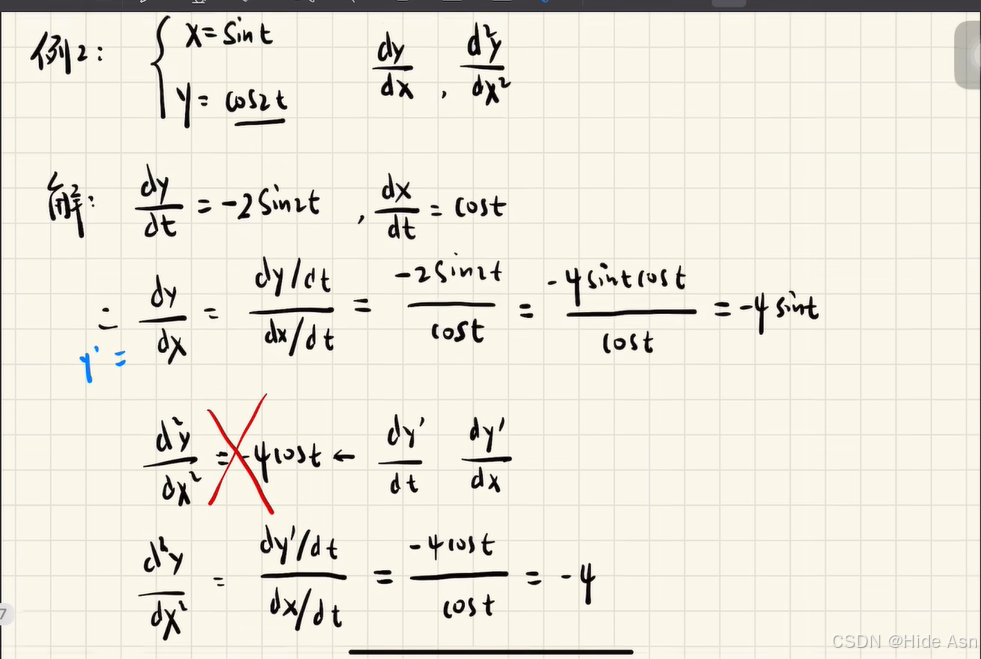 例2: { x = sint dy/dx , d²y/dx²
y = cos2t
解: dy/dt = -2sin2t , dx/dt = cost
= dy/dx = (dy/dt)/(dx/dt) = -2sin2t/cost = -4sintcost/cost = -4sint
y' =
d²y/dx² = -4cost ← dy'/dt dy'/dx
d²y/dx² = (dy'/dt)/(dx/dt) = -4cost/cost = -4
7
CSDN @Hide Asn